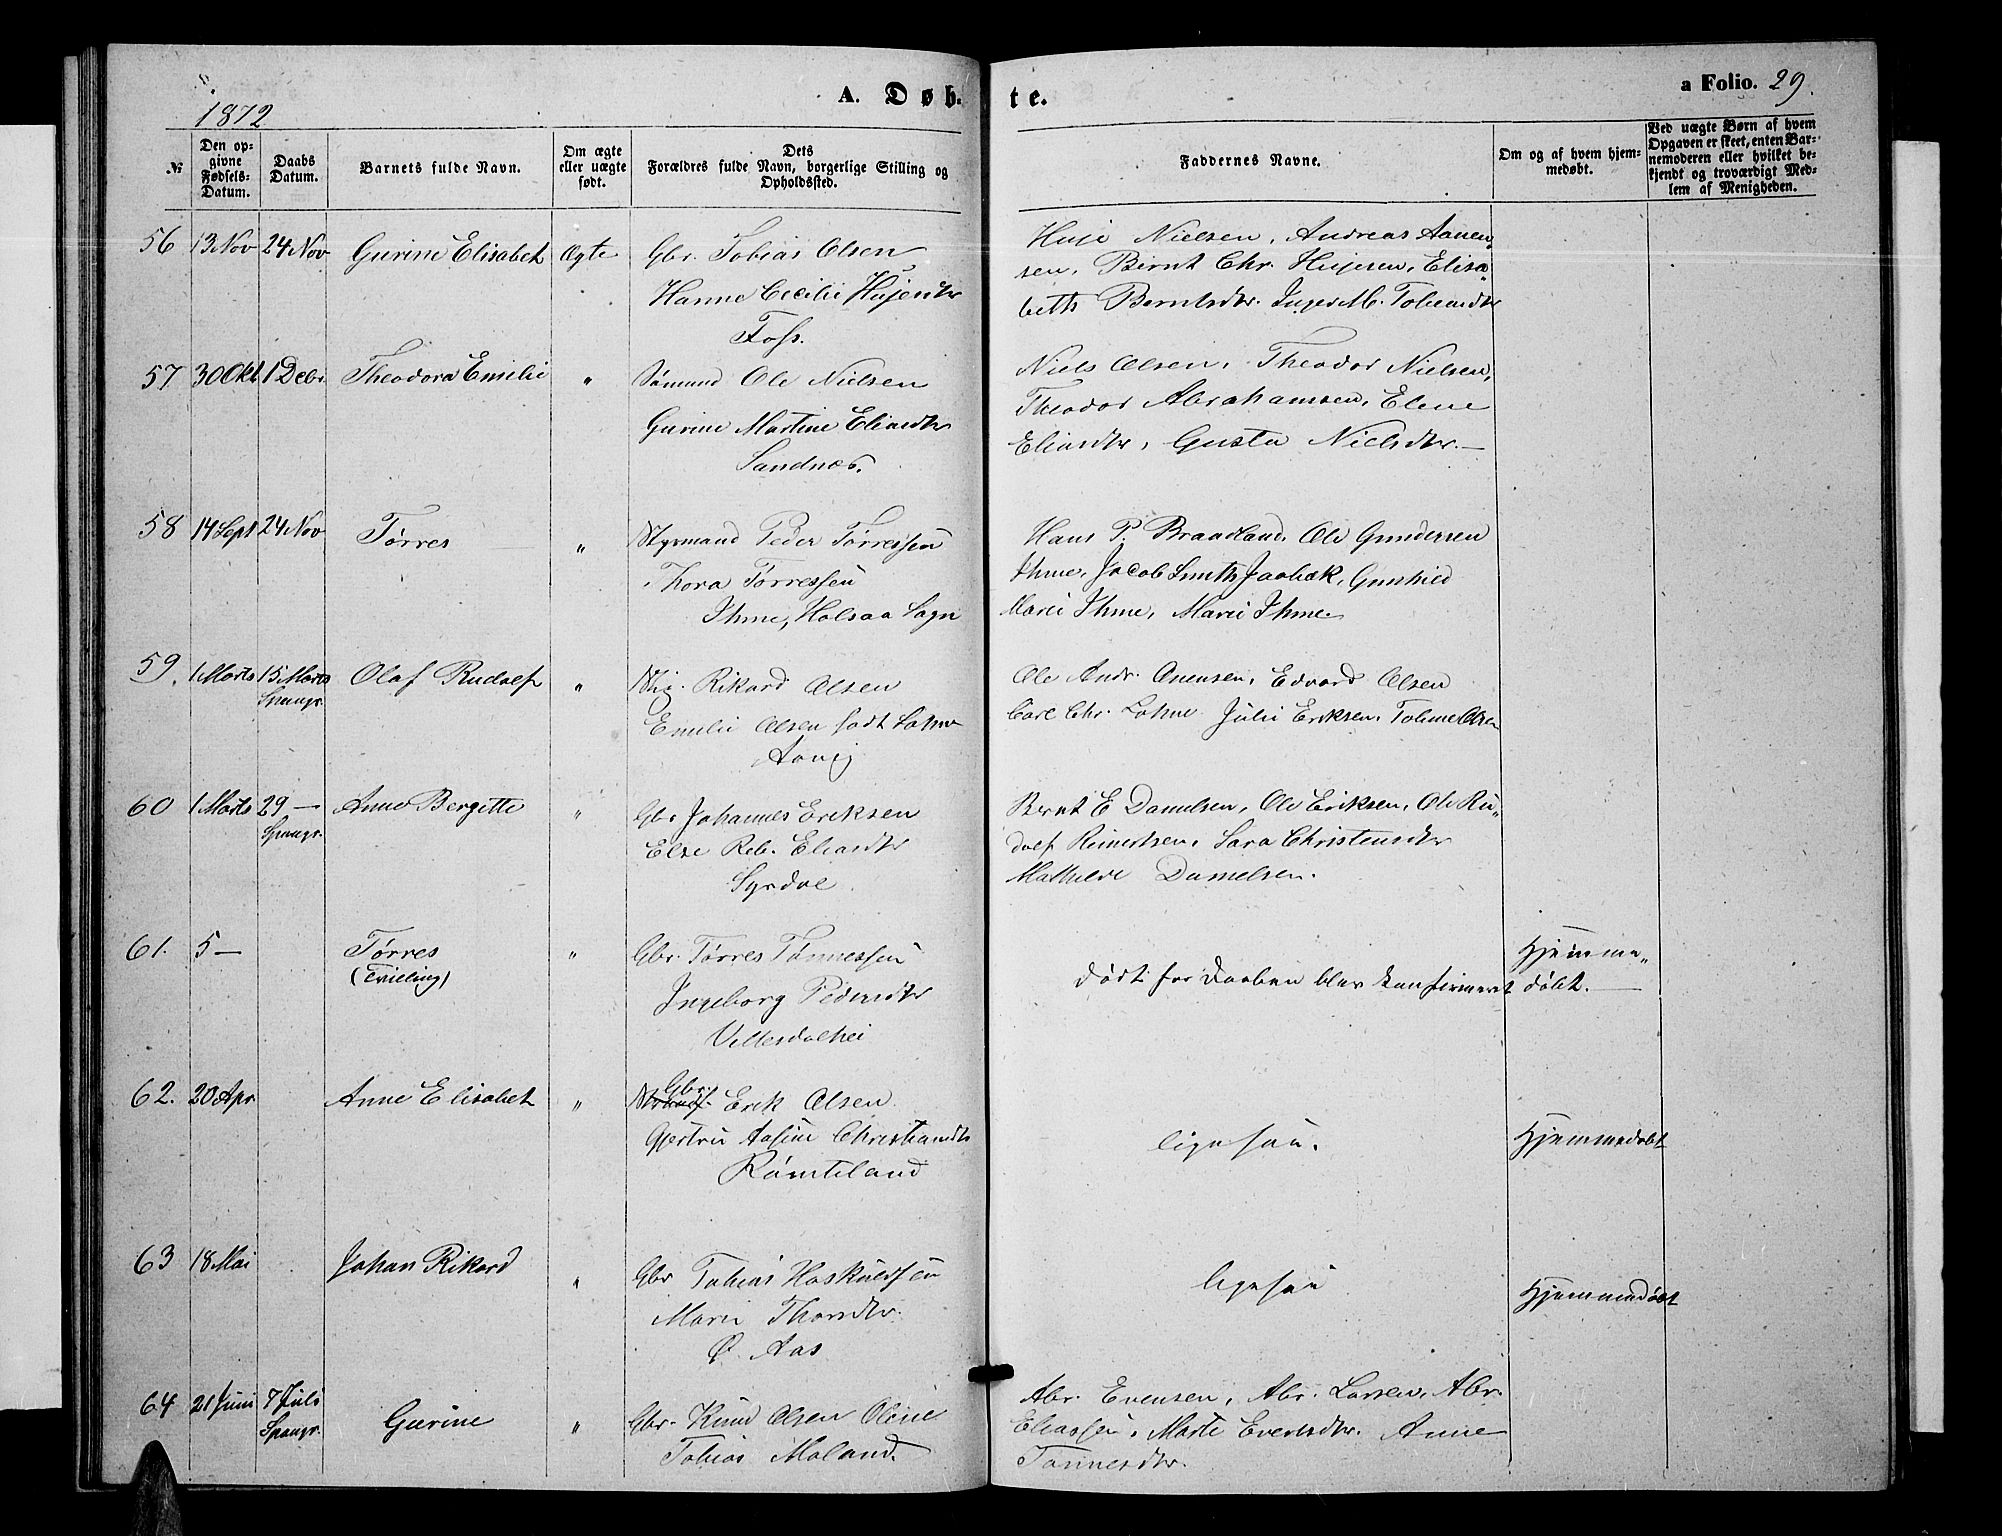 1872
A. Døb-
te.
a Folio. 29.
№
Den op-
givne
Fødsels-
Datum.
Daabs
Datum.
Barnets fulde Navn.
Om ægte
eller uægte
født.
Dets
Forældres fulde Navn, borgerlige Stilling og
Opholdssted.
Faddernes Navne.
Om og af hvem hjem-
medøbt.
Ved uægte Børn af hvem
Opgaven er skeet, enten Bar-
nemoderen eller hvilket be-
kjendt og troværdigt Med-
lem af Menigheden.
56 13 Nov 24 Nov Gurine Elisabet Ægte Gbr. Tobias Olsen
Hanne Cecilie Hujesdtr
Foss.
Huje Nielsen, Andreas Aanen-
sen, Bernt Chr. Hujesen, Elisa-
beth Berntsdtr. Inger M. Tobiasdtr
57 30 Okt 1 Decbr Theodora Emilie " Sømand Ole Nielsen
Gurine Martine Eliasdtr
Sandnæs.
Niels Olsen, Theodor Nielsen,
Theodor Abrahamsen, Elene
Eliasdtr, Gusta Nielsdtr. —
58 14 Sept 24 Nov Tørres " Styrmand Peder Tørressen
Thora Tørressen
Ihme, Holsaa Sogn
Hans P. Braadland, Ole Gundersen
Ihme, Jacob Smith Jaabæk, Gunhild
Marie Ihme, Marie Ihme.
59. 1 Marts 15 Marts Olaf Rudolf " Rikard Olsen
Spangr.
Emilie Olsen født Lohne
Aavig
Ole Andr. Anensen, Edvard Olsen
Carl Chr. Lohne Julie Eriksen, Tobine Olsen
60 1 Marts 29 — Anne Bergitte " Gbr Johannes Eriksen
Spangr.
Else Reb. Eliasdtr
Syrdal
Bernt E Danielsen, Ole Eriksen, Ole Ru-
dolf Reinertsen, Sara Christensdtr
Mathilde Danielsen.
61. 5 — Tørres " Gbr. Tørres Tønnessen
(Tvilling)
Ingeborg Pedersdtr
Vellesdalhei
Død før Daaben blev konfirmeret
Hjemme-
døbt. —
62. 20 Apr Anne Elisabet " Gbr. Erik Olsen
Gjertru Aasine Christiansdtr
Rømteland
ligesaa.
Hjemmedøbt
63 18 Mai Johan Rikard " Gbr Tobias Haskuldsen
Marie Thorsdtr.
Ø. Aas
ligesaa
Hjemmedøbt
64 21 Juni 7 Juli Gurine " Gbr. Knud Olsen Olene
Spangr.
Tobias Moland.
Abr. Evensen, Abr. Larsen, Abr.
Eliassen, Marte Evertsdtr. Anne
Tønnesdtr.